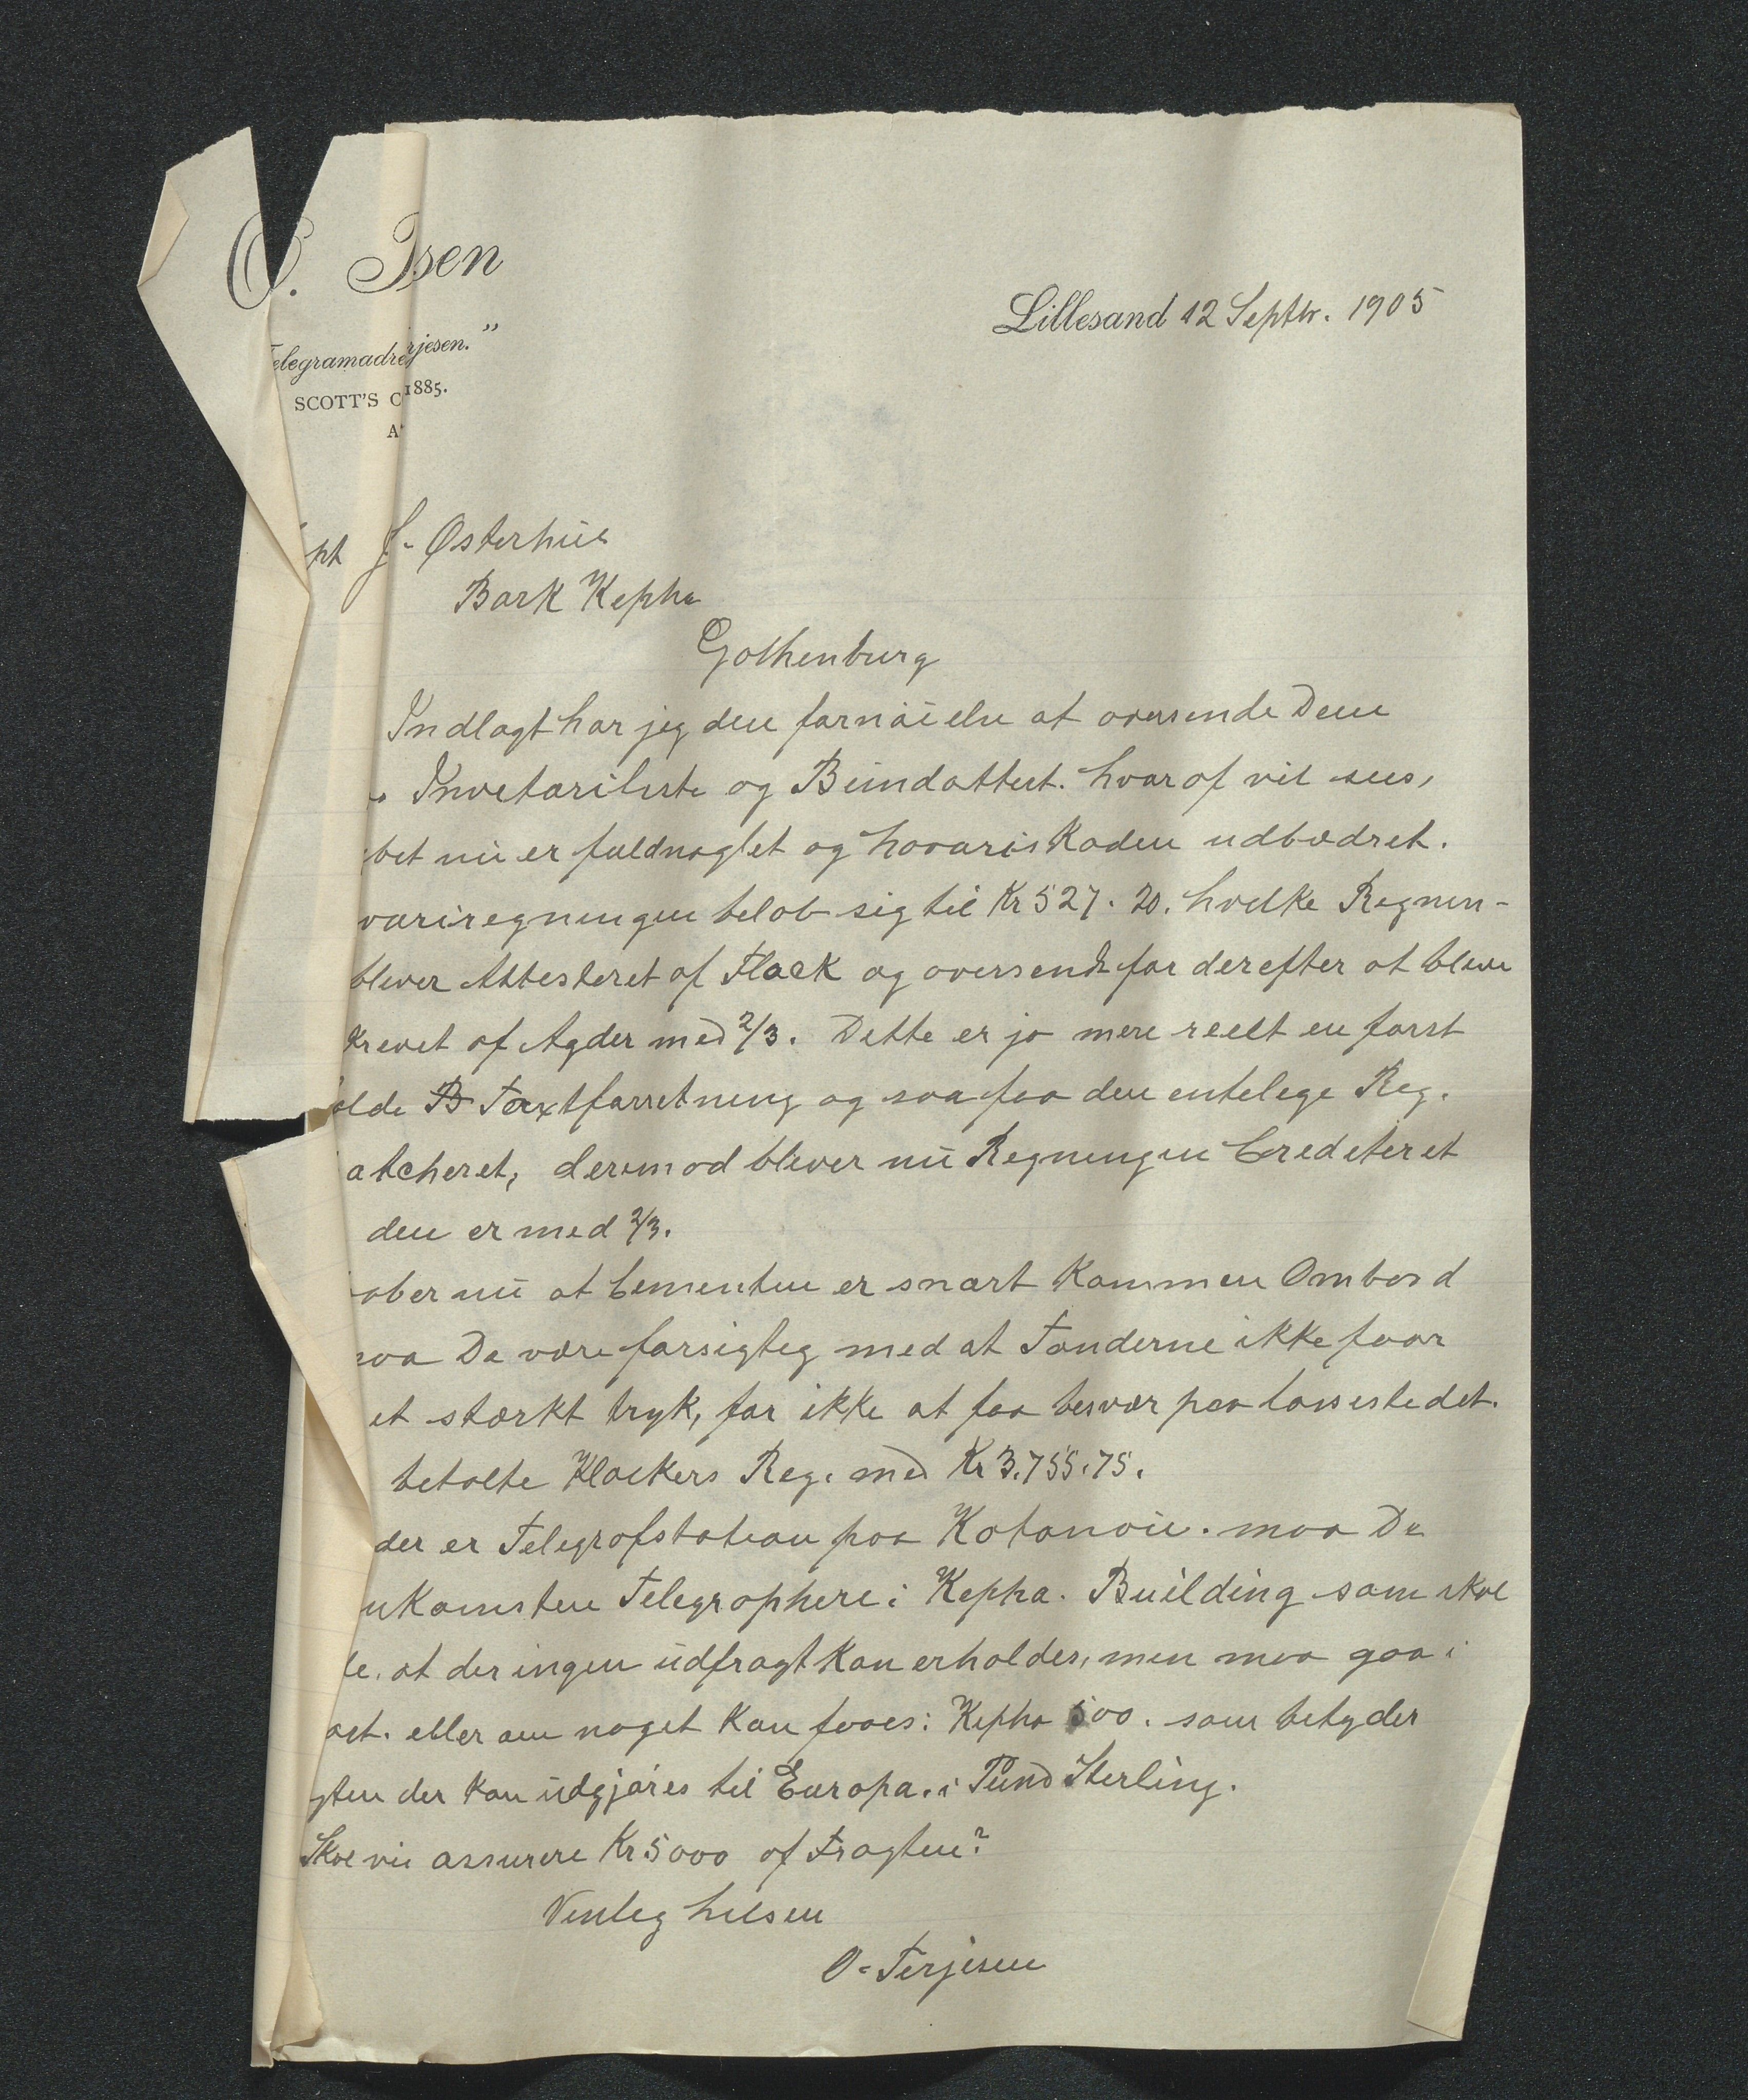 O. Tsen
Telegramadre rjesen."
SCOTT'S C 1885.
A
Lillesand 12 Septbr. 1905
pt J. Østerhus
Bark Kepha
Gothenburg
Indlagt har jeg den fornøielse at oversende Dem
Invetarieliste og Bundattest. hvoraf vil sees,
bet nu er fuldnaglet og havariskaden udbedret.
variregningen beløb sig til Kr 527.20. hvilke Regnin-
bliver Attesteret af Flack og oversendt for derefter at blive
krevet af Agder med 2/3. Dette er jo mere reelt en først
olde Taxtforretning og saa faa den entelige Reg.
atcheret, derimod bliver nu Regningen Crediteret
den er med 2/3.
aber nu at Cementen er snart kommen Ombord
maa De være forsigtig med at Tønderne ikke faar
et stærkt tryk, for ikke at faa besvær paa lossestedet.
betalte Klockers Reg. med Kr 3.755.75.
der er Telegrafstation paa Kotonou. maa De
nkomsten Telegraphere: Kepha. Building som skal
de. at der ingen udfragt kan erholdes, men maa gaa i
ast. eller om noget kan faaes: Kepha 500. som betyder
gten der kan udgjøres til Europa. i Pund Sterling.
Skal vi assurere Kr 5000 af Fragten?
Venlig hilsen
O. Terjesen